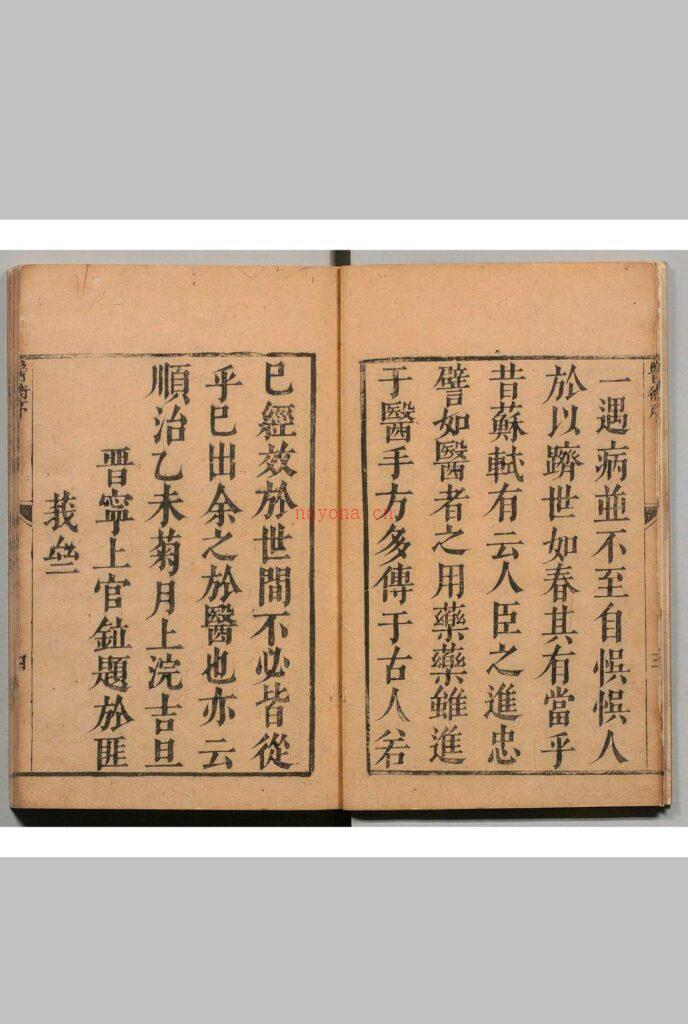 一遇病並不至自悞悞人
於以躋世如春其有當乎
昔蘇軾有云人臣之進忠
譬如醫者之用藥藥雖進
于醫手方多傳于古人若
三
已經效於世間不必皆從
乎已出余之於醫也亦云
順治乙未菊月上浣吉旦
晋寧上官鉝題於匪
莪
四
nayona.cn